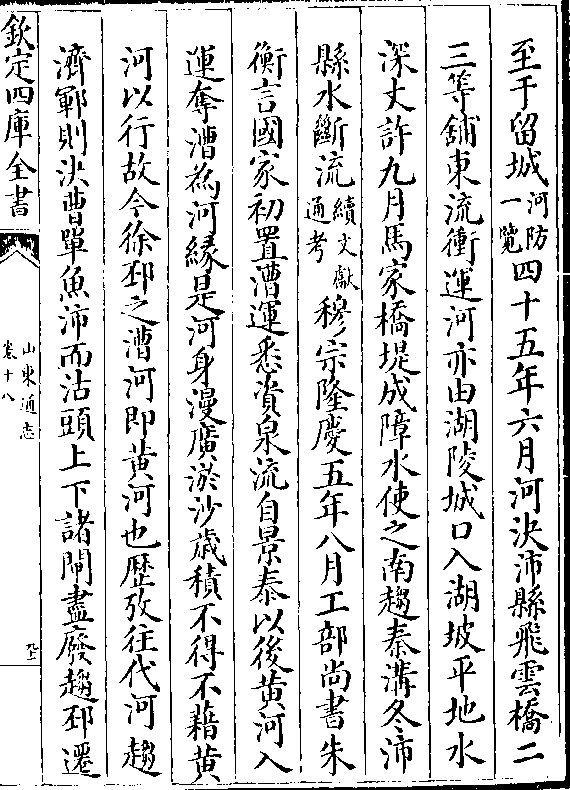 至于留城河防一覽四十五年六月河決沛縣飛雲橋二
三等舖東流衝運河亦由湖陵城口入湖坡平地水
深丈許九月馬家橋堤成障水使之南趨秦溝冬沛
縣水斷流續文獻通考穆宗隆慶五年八月工部尚書朱
衡言國家初置漕運悉資泉流自景泰以後黄河入
運奪漕為河縁是河身漫廣淤沙歳積不得不藉黄
河以行故今徐邳之漕河即黄河也歴攷往代河趨
濟鄆則決曹單魚沛而沽頭上下諸閘盡廢趨邳遷
欽定四庫全書
山東通志
卷十八